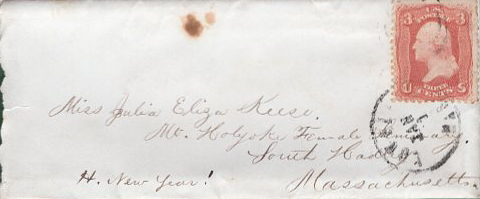 3 U.S. POSTAGE 3
U THREE CENTS S
Miss Julia Eliza Reese.
Mt. Holyok Female Seminary
South Hadley
H. New Year! Massachusetts.